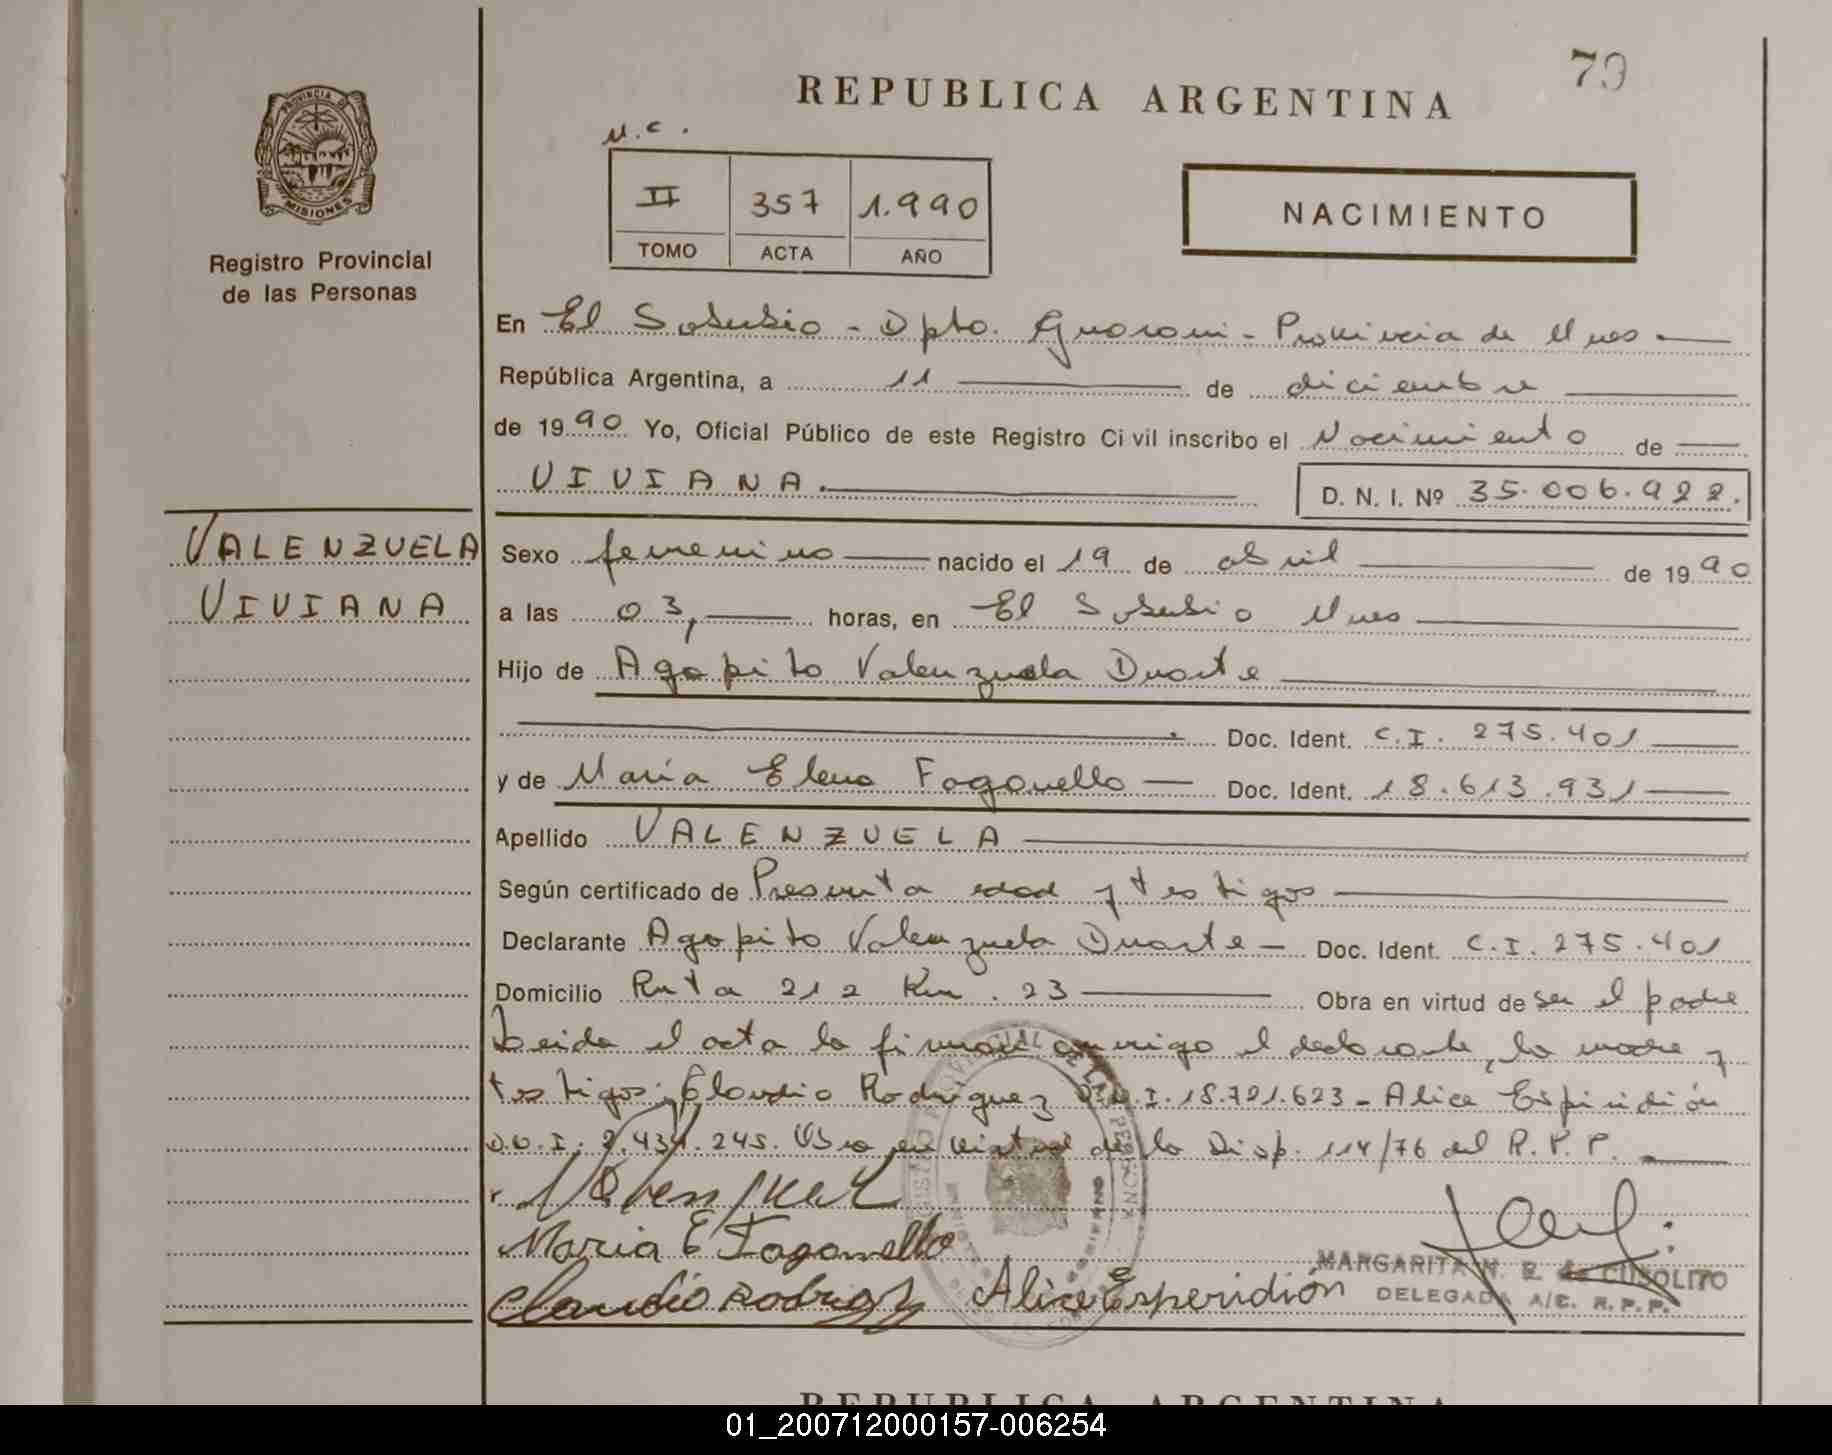 79
REPUBLICA ARGENTINA
PROVINCIA DE
MISIONES
N.C.
II 357 1.990
TOMO ACTA AÑO
NACIMIENTO
Registro Provincial
de las Personas
En El Soberbio - Dpto. Guarani - Provincia de Mnes
República Argentina, a 11 de diciembre
de 1990 Yo, Oficial Público de este Registro Civil inscribo el Nacimiento de
VIVIANA. D. N. I. Nº 35.006.922.
VALENZUELA
VIVIANA
Sexo femenino nacido el 19 de abril de 1990
a las 03, horas, en El Soberbio Mnes
Hijo de Agapito Valenzuela Duarte
Doc. Ident. C.I. 275.401
y de María Elena Fagonello Doc. Ident. 18.613.931
Apellido VALENZUELA
Según certificado de Presunta edad y testigos
Declarante Agapito Valenzuela Duarte Doc. Ident. C.I. 275.401
Domicilio Ruta 212 Km. 23 Obra en virtud de ser el padre
Leida el acta la firman conmigo el declarante, la madre y
testigos: Claudio Rodriguez D.N.I. 18.721.623 - Alice Espiridión
D.N.I. 2.434.245. Obro en virtud de la Disp. 114/76 del R.P.P.
Maria E Fagonello
Claudio Rodriguez Alice Esperidión
MARGARITA N. R. de CUSOLITO
DELEGADA A/C. R.P.P.
REPUBLICA ARGENTINA
01_200712000157-006254